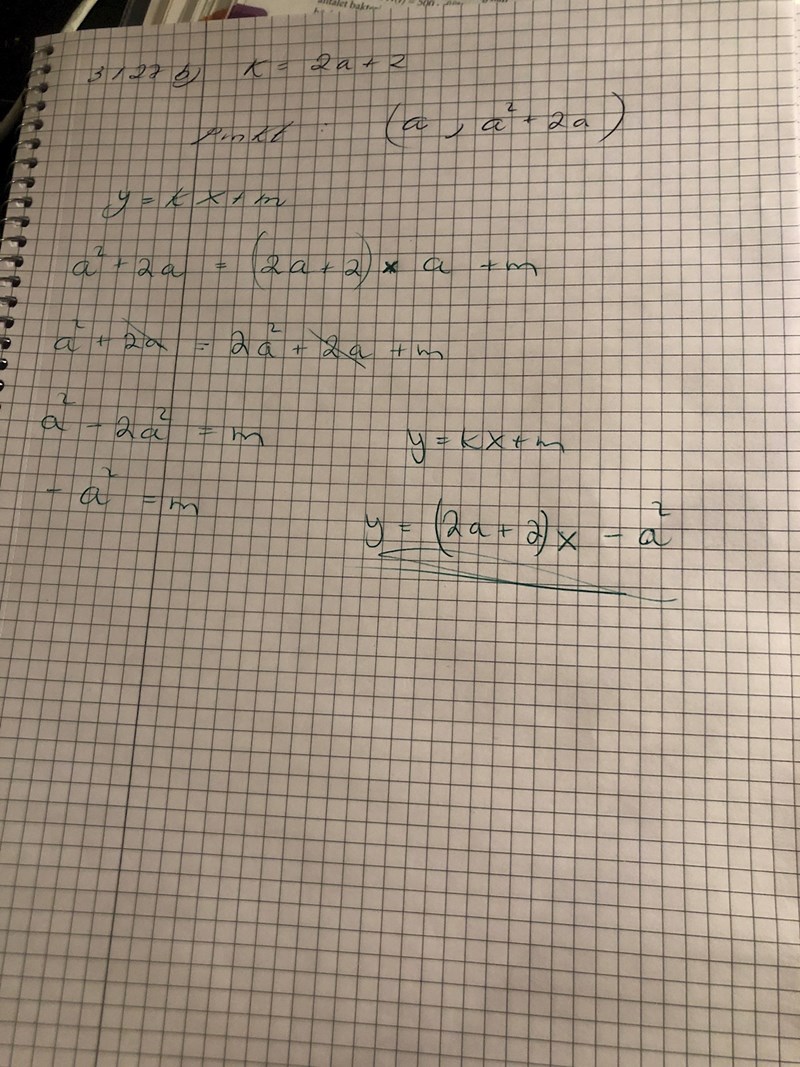 3127 b) K = 2a + 2
punkt : (a, a² + 2a)
y = kx + m
a² + 2a = (2a + 2) × a + m
a² + 2a = 2a² + 2a + m
a² - 2a² = m
- a² = m
y = kx + m
y = (2a + 2)x - a²